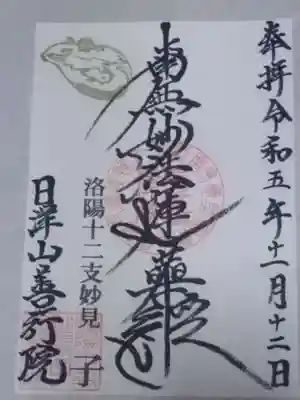 奉拝 令和五年十一月十二日
南無妙法蓮華経
洛陽十二支妙見 子
日洋山善行院